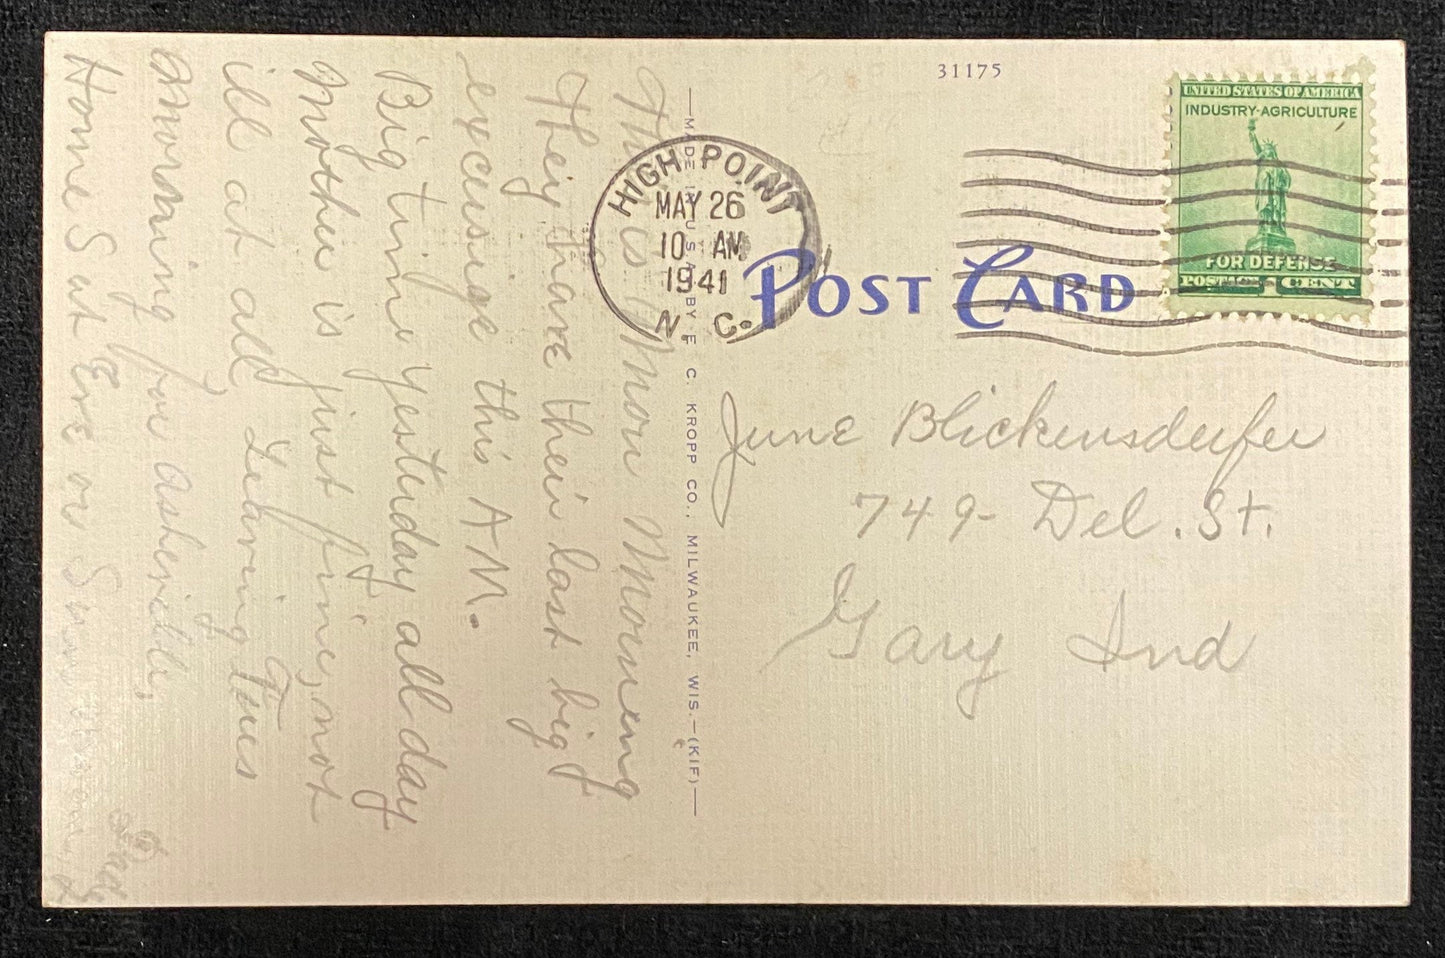 31175
UNITED STATES OF AMERICA
INDUSTRY-AGRICULTURE
FOR DEFENSE
POSTAGE 1 CENT
HIGH POINT
MAY 26
10 AM
1941
N. C.
POST CARD
MADE IN U.S.A. BY E. C. KROPP CO., MILWAUKEE, WIS.-(KIF)
June Blickensderfer
749- Del. St.
Gary Ind
This is Mon Morning
They have their last big
excursige this A.M.
Big time yesterday all day
Mother is just fine, not
ill at all Leaving Tues
morning for asheville,
Home Sat Eve or Sun
Dad